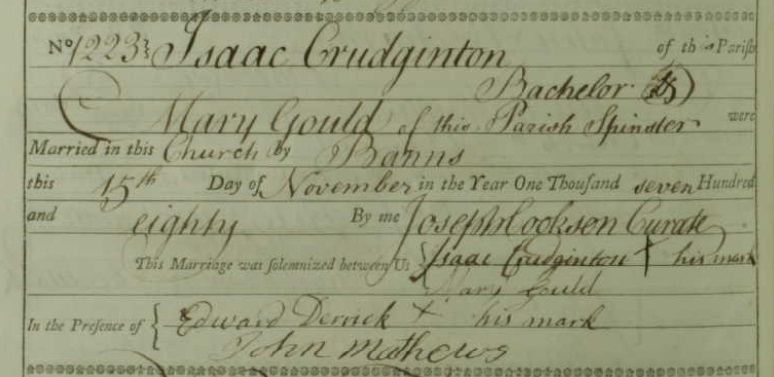 No 1223} Isaac Crudginton of this Parish
Bachelor &
Mary Gould of this Parish Spinster were
Married in this Church by Banns
this 15th Day of November in the Year One Thousand seven Hundred
and eighty By me Joseph Cookson Curate
This Marriage was solemnized between Us { Isaac Crudginton + his mark
Mary Gould
In the Presence of { Edward Derrick + his mark
John Mathews